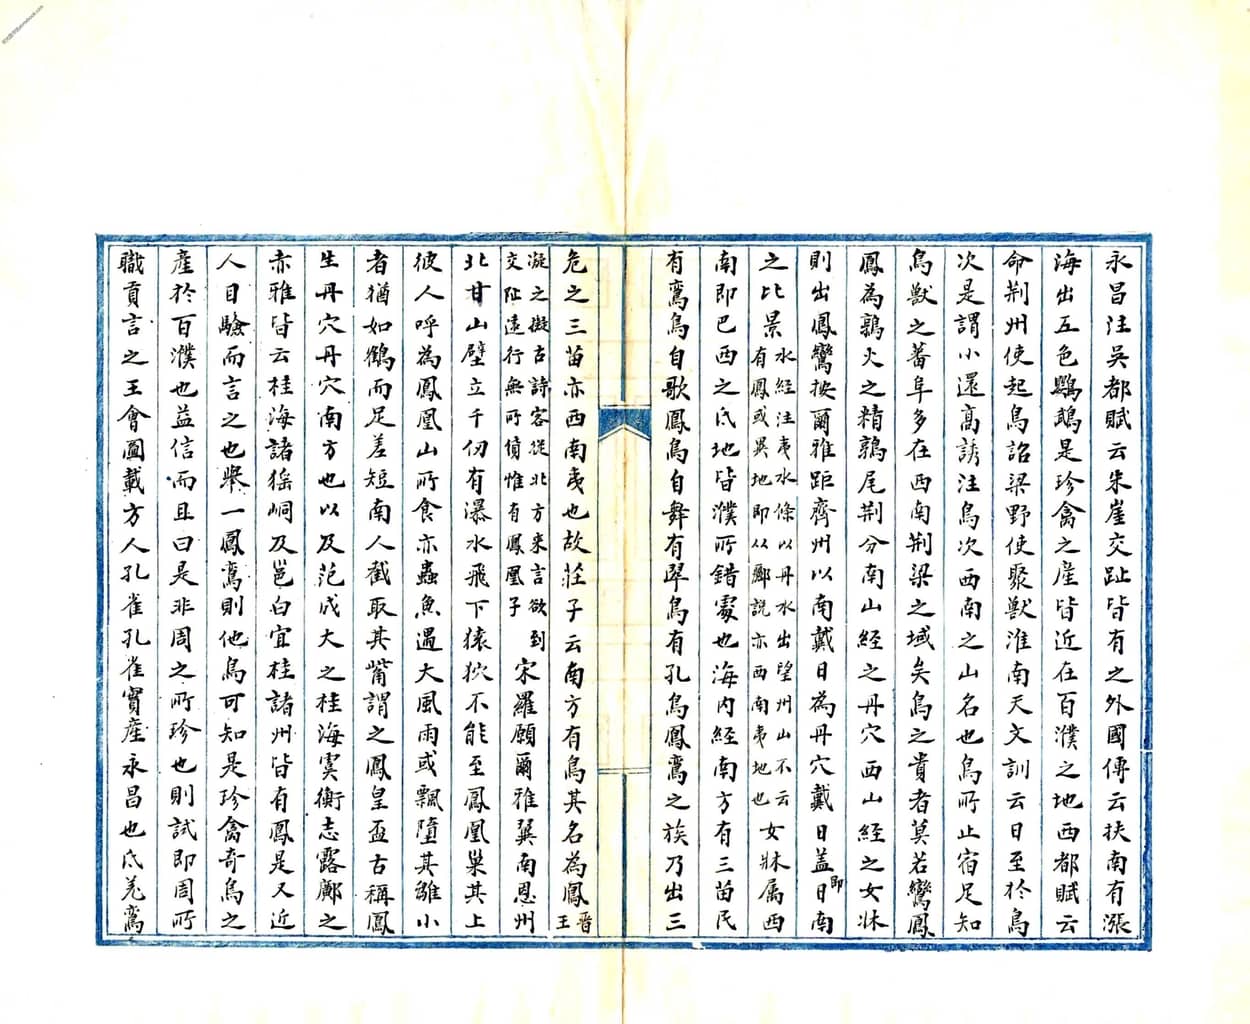 永昌注吳都賦云朱崖交趾皆有之外國傳云扶南有漲
海出五色鸚鵡是珍禽之産皆近在百濮之地西都賦云
命荆州使起鳥詔梁野使聚獸淮南天文訓云日至於鳥
次是謂小還髙誘注鳥次西南之山名也鳥所止宿足知
鳥獸之蕃阜多在西南荆梁之域矣鳥之貴者莫若鸞鳳
鳳為鶉火之精鶉尾荆分南山經之丹穴西山經之女牀
則出鳳鸞按爾雅距齊州以南戴日為丹穴戴日蓋日即南
之比景水經注夷水條以丹水出望州山不云
有鳳或異地即从酈説亦西南夷地也女牀属西
南即巴西之氐地皆濮所錯䖏也海内經南方有三苗民
有鸞鳥自歌鳳鳥自舞有翠鳥有孔鳥鳳鸞之族乃出三
危之三苗亦西南夷也故莊子云南方有鳥其名為鳳晉王
凝之擬古詩客從北方來言欲到
交阯遠行無所慎惟有鳳凰子宋羅願爾雅翼南恩州
北甘山壁立千仞有瀑水飛下猿狖不能至鳳凰巢其上
彼人呼為鳳凰山所食亦蟲魚遇大風雨或飄墮其雛小
者猶如鶴而足差短南人截取其觜謂之鳳皇盃古稱鳳
生丹穴丹穴南方也以及范成大之桂海虞衡志露鄺之
赤雅皆云桂海諸猺峒及邕白宜桂諸州皆有鳳是又近
人目驗而言之也舉一鳳鸞則他鳥可知是珍禽奇鳥之
産於百濮也益信而且曰是非周之所珍也則試即周所
職貢言之王會圖載方人孔雀孔雀實産永昌也氐羌鸞